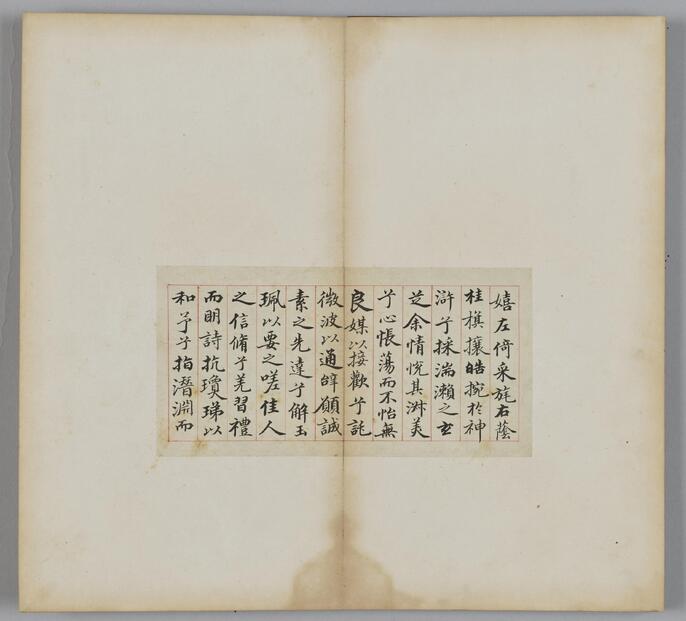 嬉左倚采旄右蔭
桂旗攘皓捥於神
滸兮採湍瀨之玄
芝余情悅其淑美
兮心悵蕩而不怡無
良媒以接歡兮託
微波以通辭願誠
素之先達兮解玉
珮以要之嗟佳人
之信脩兮羌習禮
而明詩抗瓊珶以
和予兮指潛淵而